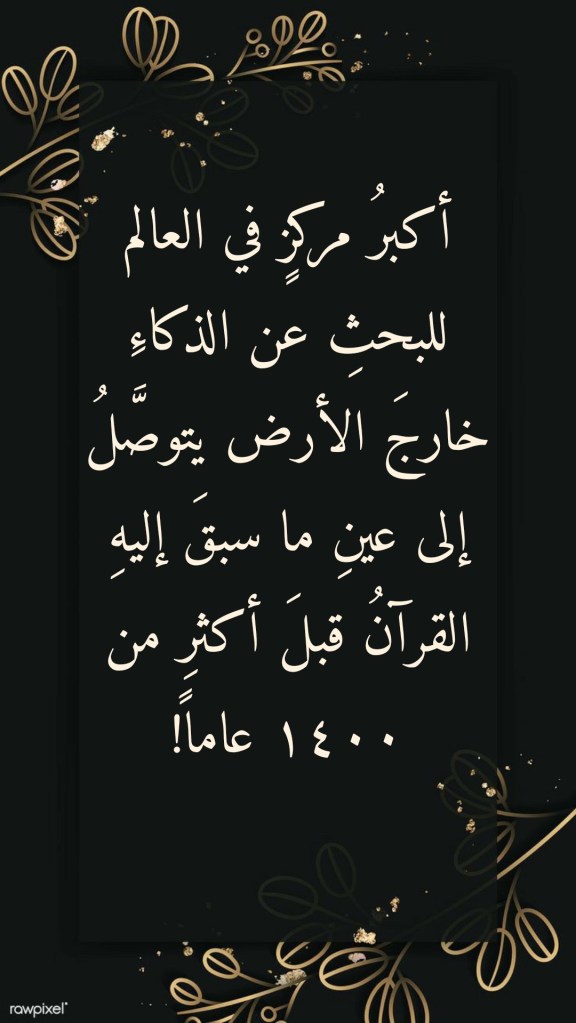 أكبرُ مركزٍ في العالم
للبحثِ عن الذكاءِ
خارجَ الأرض يتوصَّلُ
إلى عينِ ما سبقَ إليهِ
القرآنُ قبلَ أكثرِ من
١٤٠٠ عاماً!
rawpixel